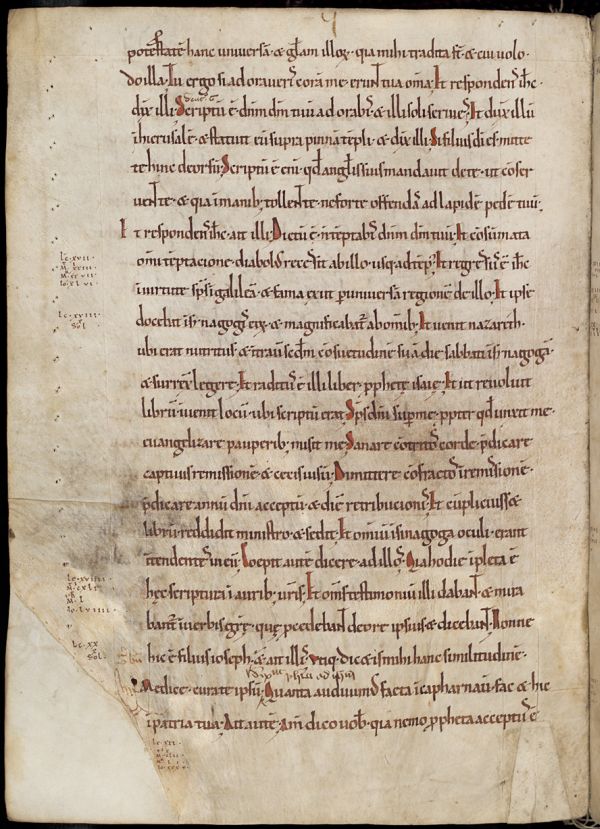 potestatē hanc universā · & glam illoꝝ · quia mihi tradita st̄ · & cui volo ·
do illa · Tu ergo si adoraver̄ corā me · erunt tua om̄a · Et responden̄ ihc̄
dix̄ illi · Scriptū ē · dnm̄ dm̄ tuū adorab̄ · & illi soli servies · Et dux̄ illū
ī hierusalē · & statuit eū supra pinnā tēpli · & dix̄ illi · Si filius dī es · mitte
te hinc deorsū · Scriptū ē enī · qd̄ anglis suis mandavit de te · ut cōser
vent te · & quia in manib; tollent te · ne forte offendā ad lapidē pedē tuū ·
Et responden̄ ihc̄ · ait illi · Dictū ē · n̄ tēptabis dnm̄ dm̄ tuū · Et cōsūmata
om̄i teptacione · diabolus recessit ab illo · usq; ad tēps̄ · Et regressus ē ihc̄
in virtute sps̄ ī galileā · & fama exiit p universā regionē de illo · Et ipse
docebat ī sinagogis eoꝝ · & magnificabatr̄ ab omīb; Et venit nazareth ·
ubi erat nutritus · & ītravit scdm̄ cōsuetudinē suā die sabbati ī sinagogā ·
& surrexit legere · Et traditus ē illi liber · pphetę isaię · Et ut revolvit
librū · īvenit locū · ubi scriptū erat · Sps̄ dni sup me · ppter qd̄ unxit me ·
euangelizare pauperib; misit me · Sanare cōtritos corde · p̄dicare
captivis remissionē · & cecis visū · Dimittere cōfractos ī remissionē ·
p̄dicare annū dni acceptū · & diē retribucionis · Et cū plicuiss&
librū · reddidit ministro · & sedit · Et omniū ī sinagoga oculi · erant
ītendentes in eū · Coepit autē dicere ad illos · Quia hodie īpleta ē
hęc scriptura ī aurib; vr̄is · Et om̄s testimoniū illi dabant · & mira
bantr̄ ī verbis grę · quę pcedebant de ore ipsius · & dicebant · Nonne
hic ē filius ioseph · & ait illis · utiq; dic&is mihi hanc similitudinē ·
Medice · cura te ipsū · Quanta audivim; facta ī capharnaū · fac & hic
ī patria tua · Ait autē · Am̄ dico vob̄ · quia nemo ppheta acceptus ē
Lc · xvii ·
Lc · xviii ·
Sol ·
Lc · xx ·
Sol ·